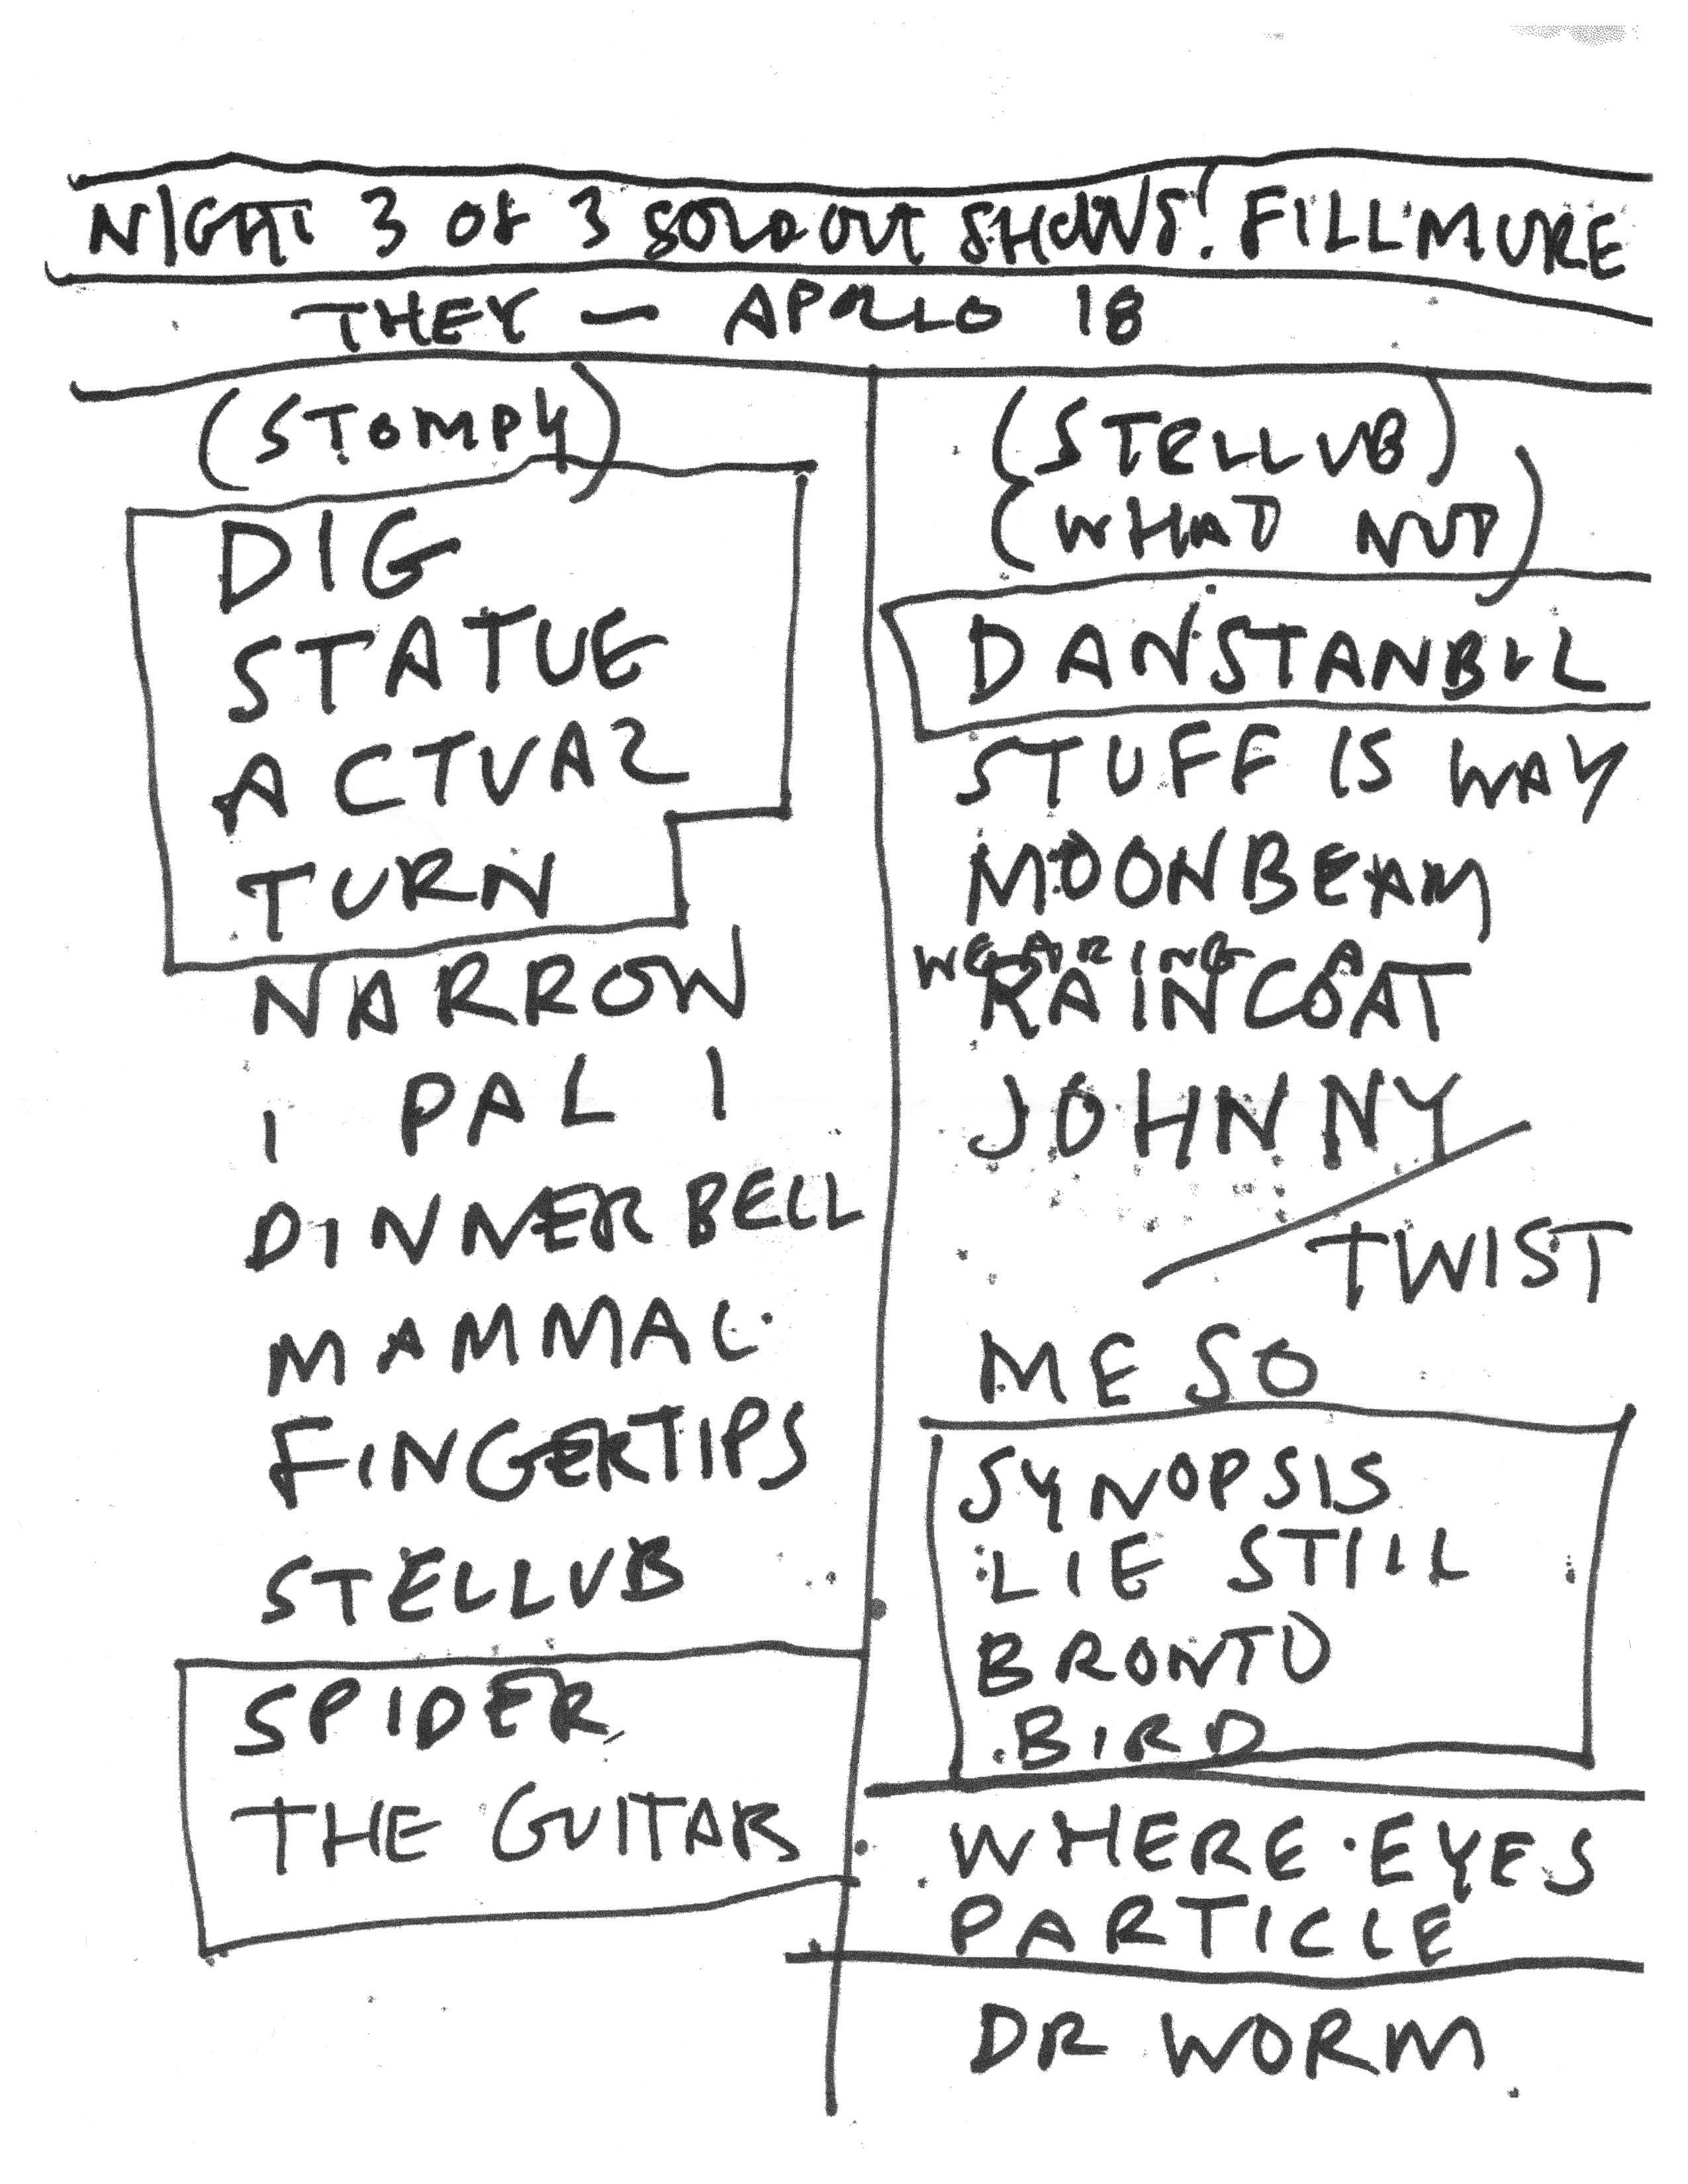 NIGHT 3 OF 3 SOLD OUT SHOWS! FILLMORE
THEY — APOLLO 18
(STOMPY)
DIG
STATUE
ACTUAL
TURN
NARROW
I PAL I
DINNER BELL
MAMMAL
FINGERTIPS
STELLUB
SPIDER
THE GUITAR
(STELLUB)
(WHAT NOT)
DANSTANBUL
STUFF IS WAY
MOONBEAM
WEARING A
RAINCOAT
JOHNNY
TWIST
MESO
SYNOPSIS
LIE STILL
BRONTO
BIRD
WHERE EYES
PARTICLE
DR WORM